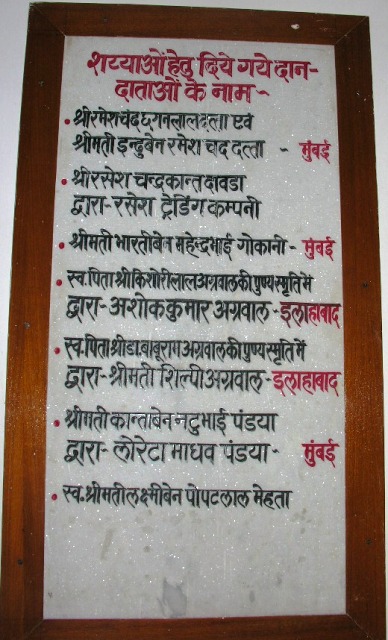 शय्याओं हेतु दिये गये दान-
दाताओं के नाम ~
• श्री रमेश चंद छगनलाल दत्ता एवं
श्रीमती इन्दुबेन रमेश चंद दत्ता - मुंबई
• श्री रसेश चन्द्रकान्त दावडा
द्वारा- रसेश ट्रेडिंग कम्पनी
• श्रीमती भारतीबेन महेन्द्रभाई गोकानी - मुंबई
• स्व. पिता श्री किशोरीलाल अग्रवाल की पुण्य स्मृति में
द्वारा- अशोक कुमार अग्रवाल - इलाहाबाद
• स्व. पिता श्री डा. बाबूराम अग्रवाल की पुण्य स्मृति में
द्वारा- श्रीमती शिल्पी अग्रवाल - इलाहाबाद
• श्रीमती कान्ताबेन नटुभाई पंडया
द्वारा- लोरेटा माधव पंडया - मुंबई
• स्व. श्रीमती लक्ष्मीबेन पोपटलाल मेहता